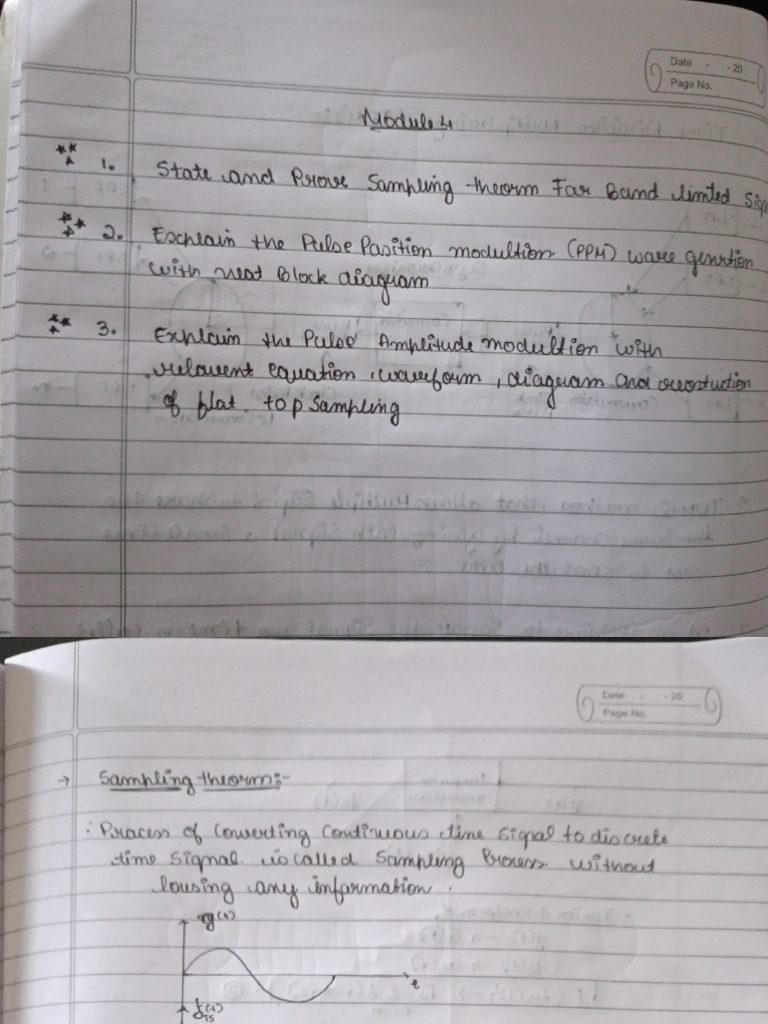 Date - - 20
Page No.
Module 4
1. State and Prove Sampling theorm For Band limited
2. Explain the Pulse Position modultion (PPM) wave genrtion
with neat Block diagram
3. Explain the Pulse Amplitude modultion with
relavent equation, waveform, diagram and
of flat top Sampling
Date - - 20
Page No.
→ Sampling theorm:-
: Process of converting continuous time signal to discrete
time signal is called Sampling Process without
lousing any information.
g(t)
t